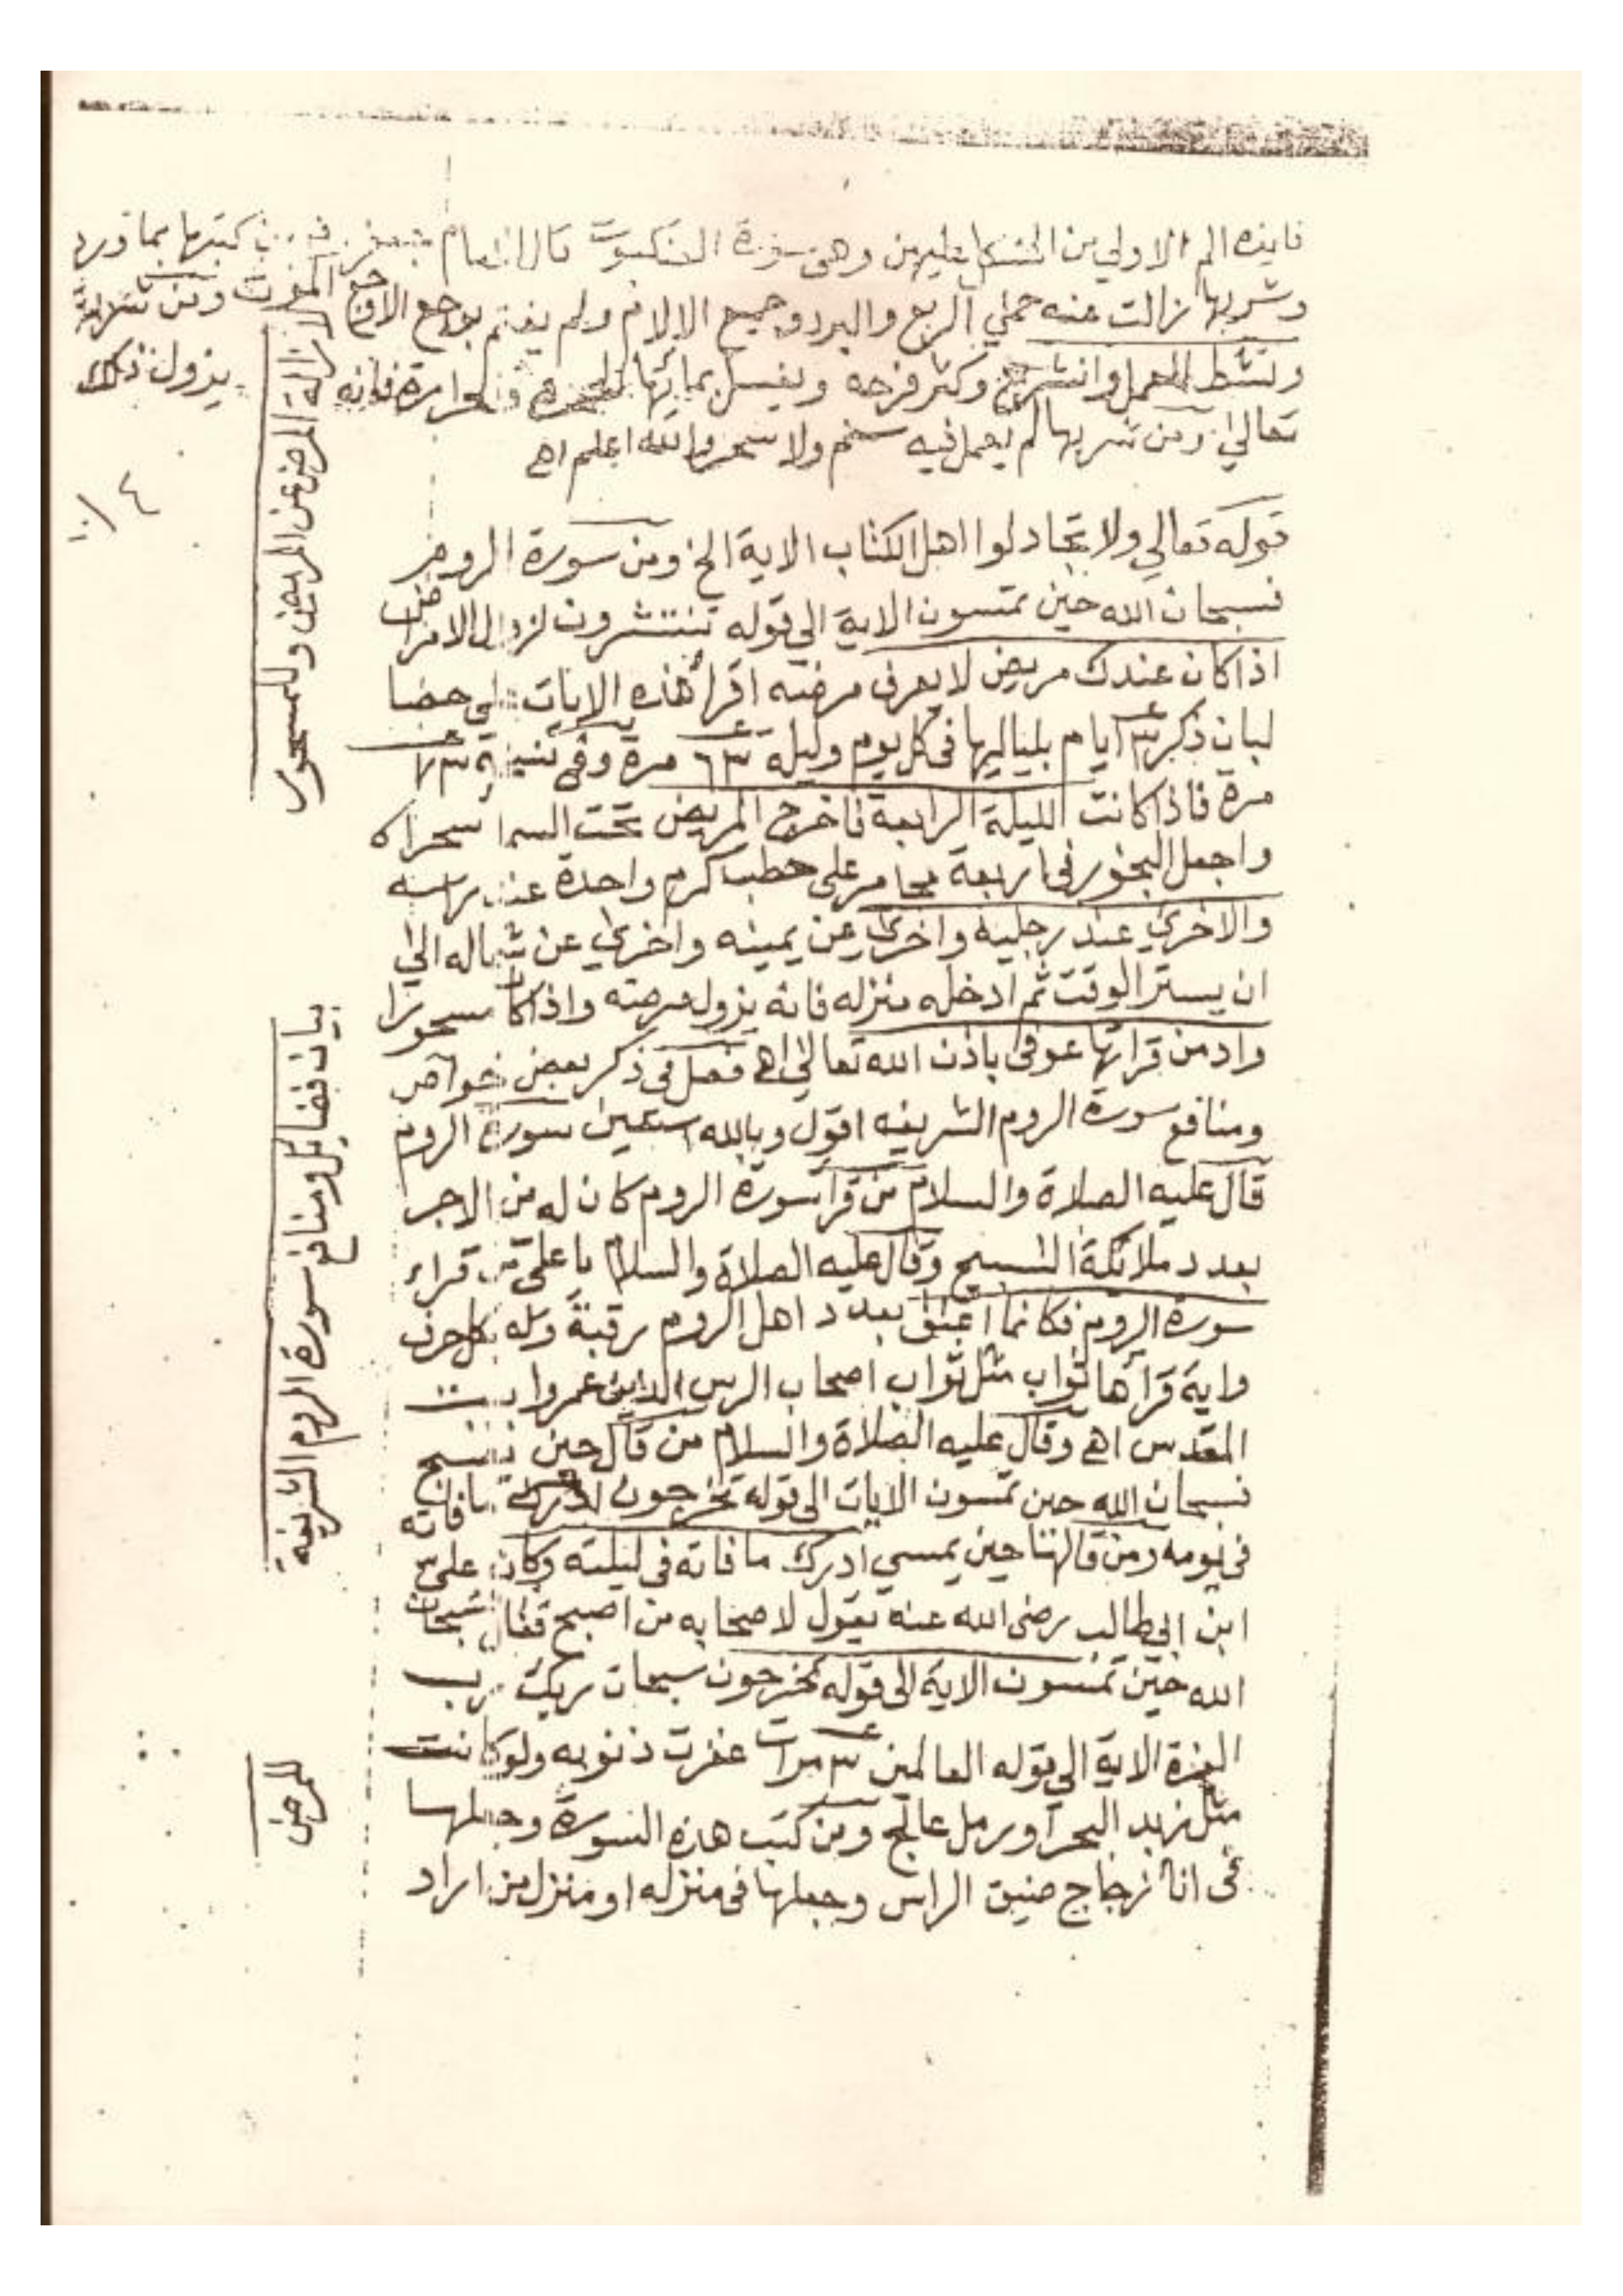 فايده الم الاولي من المتكلم عليهن وهي سورة العنكبوت قال الامام جعفر من كتبها بماورد
وشربها زالت عنه حمي الربع والبرد وجميع الالام ولم يغتم بوجع الاوجع الموت ومن
ونشط للعمل وانشرح وكثر فرحه ويغسل بمائها الحمره والحرارة فانه يزول ذلك
تعالي ومن شربها لم يعمل فيه سم ولا سحر والله اعلم اهـ
قوله تعالي ولا تجادلوا اهل الكتاب الاية الخ ومن سورة الروم
فسبحان الله حين تمسون الاية الي قوله تنتشرون لزوال الامراض
اذا كان عندك مريض لا يعرف مرضه اقرأ هذه الايات علي حصا
لبان ذكر ٣ ايام بلياليها في كل يوم وليلة ٦٣ مرة وفي نسخة
مرة فاذا كانت الليلة الرابعة فاخرج المريض تحت السما سحرا
واجعل البخور في اربعة مجامر علي حطب كرم واحدة عند راسه
والاخري عند رجليه واخري عن يمينه واخري عن شماله الي
ان يستر الوقت ثم ادخله منزله فانه يزول مرضه واذا كان مسحورا
وادمن قرائتها عوفي باذن الله تعالي اهـ فصل في ذكر بعض خواص
ومنافع سورة الروم الشريفه اقول وبالله استعين سورة الروم
قال عليه الصلاة والسلام من قرأ سورة الروم كان له من الاجر
بعدد ملائكة التسبيح وقال عليه الصلاة والسلام يا علي من قراء
سورة الروم فكانما اعتق بعدد اهل الروم رقبة وله بكل حرف
واية قرأها ثواب مثل ثواب اصحاب الرس الذين عمروا بيت
المقدس اهـ وقال عليه الصلاة والسلام من قال حين يصبح
فسبحان الله حين تمسون الايات الي قوله تخرجون ادرك ما فاته
في يومه ومن قالها حين يمسي ادرك ما فاته في ليلته وكان علي
ابن ابي طالب رضي الله عنه يقول لاصحابه من اصبح فقال سبحان
الله حين تمسون الاية الي قوله تخرجون سبحان ربك رب
العزة الاية الي قوله العالمين ٣ مرات غفرت ذنوبه ولو كانت
مثل زبد البحر او رمل عالج ومن كتب هذه السورة وجعلها
في انا زجاج ضيق الراس وجعلها في منزله او منزل من اراد
لازالة المرض عن المريض وللمسحور
بيان فضايل ومنافع سورة الروم الشريفة
للمرض